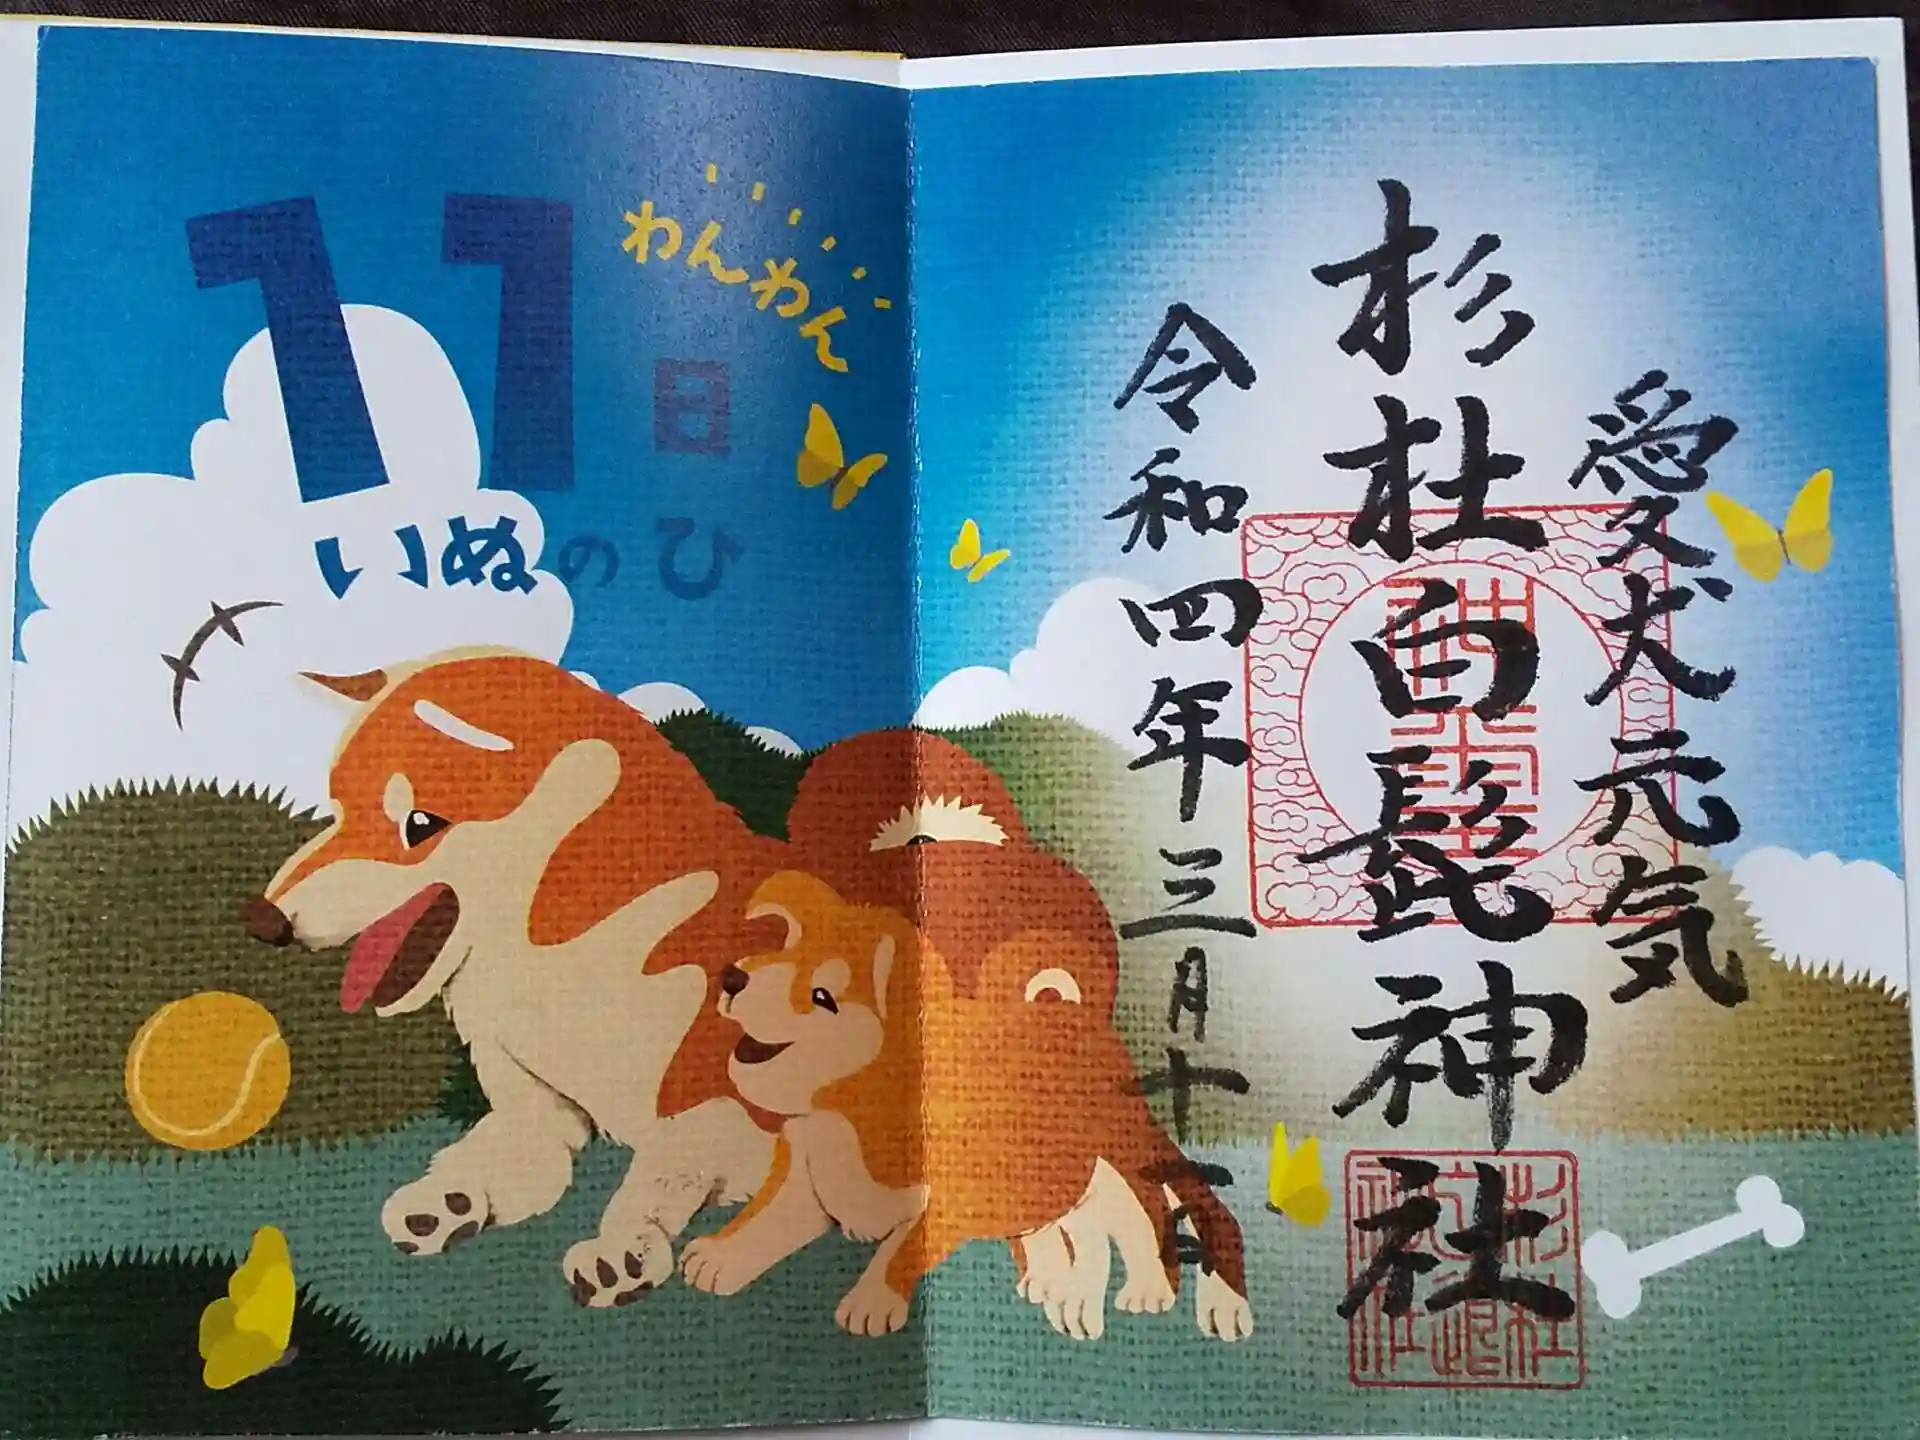 愛犬元気
杉杜白髭神社
令和四年三月十一日
わんわん
11日
いぬのひ